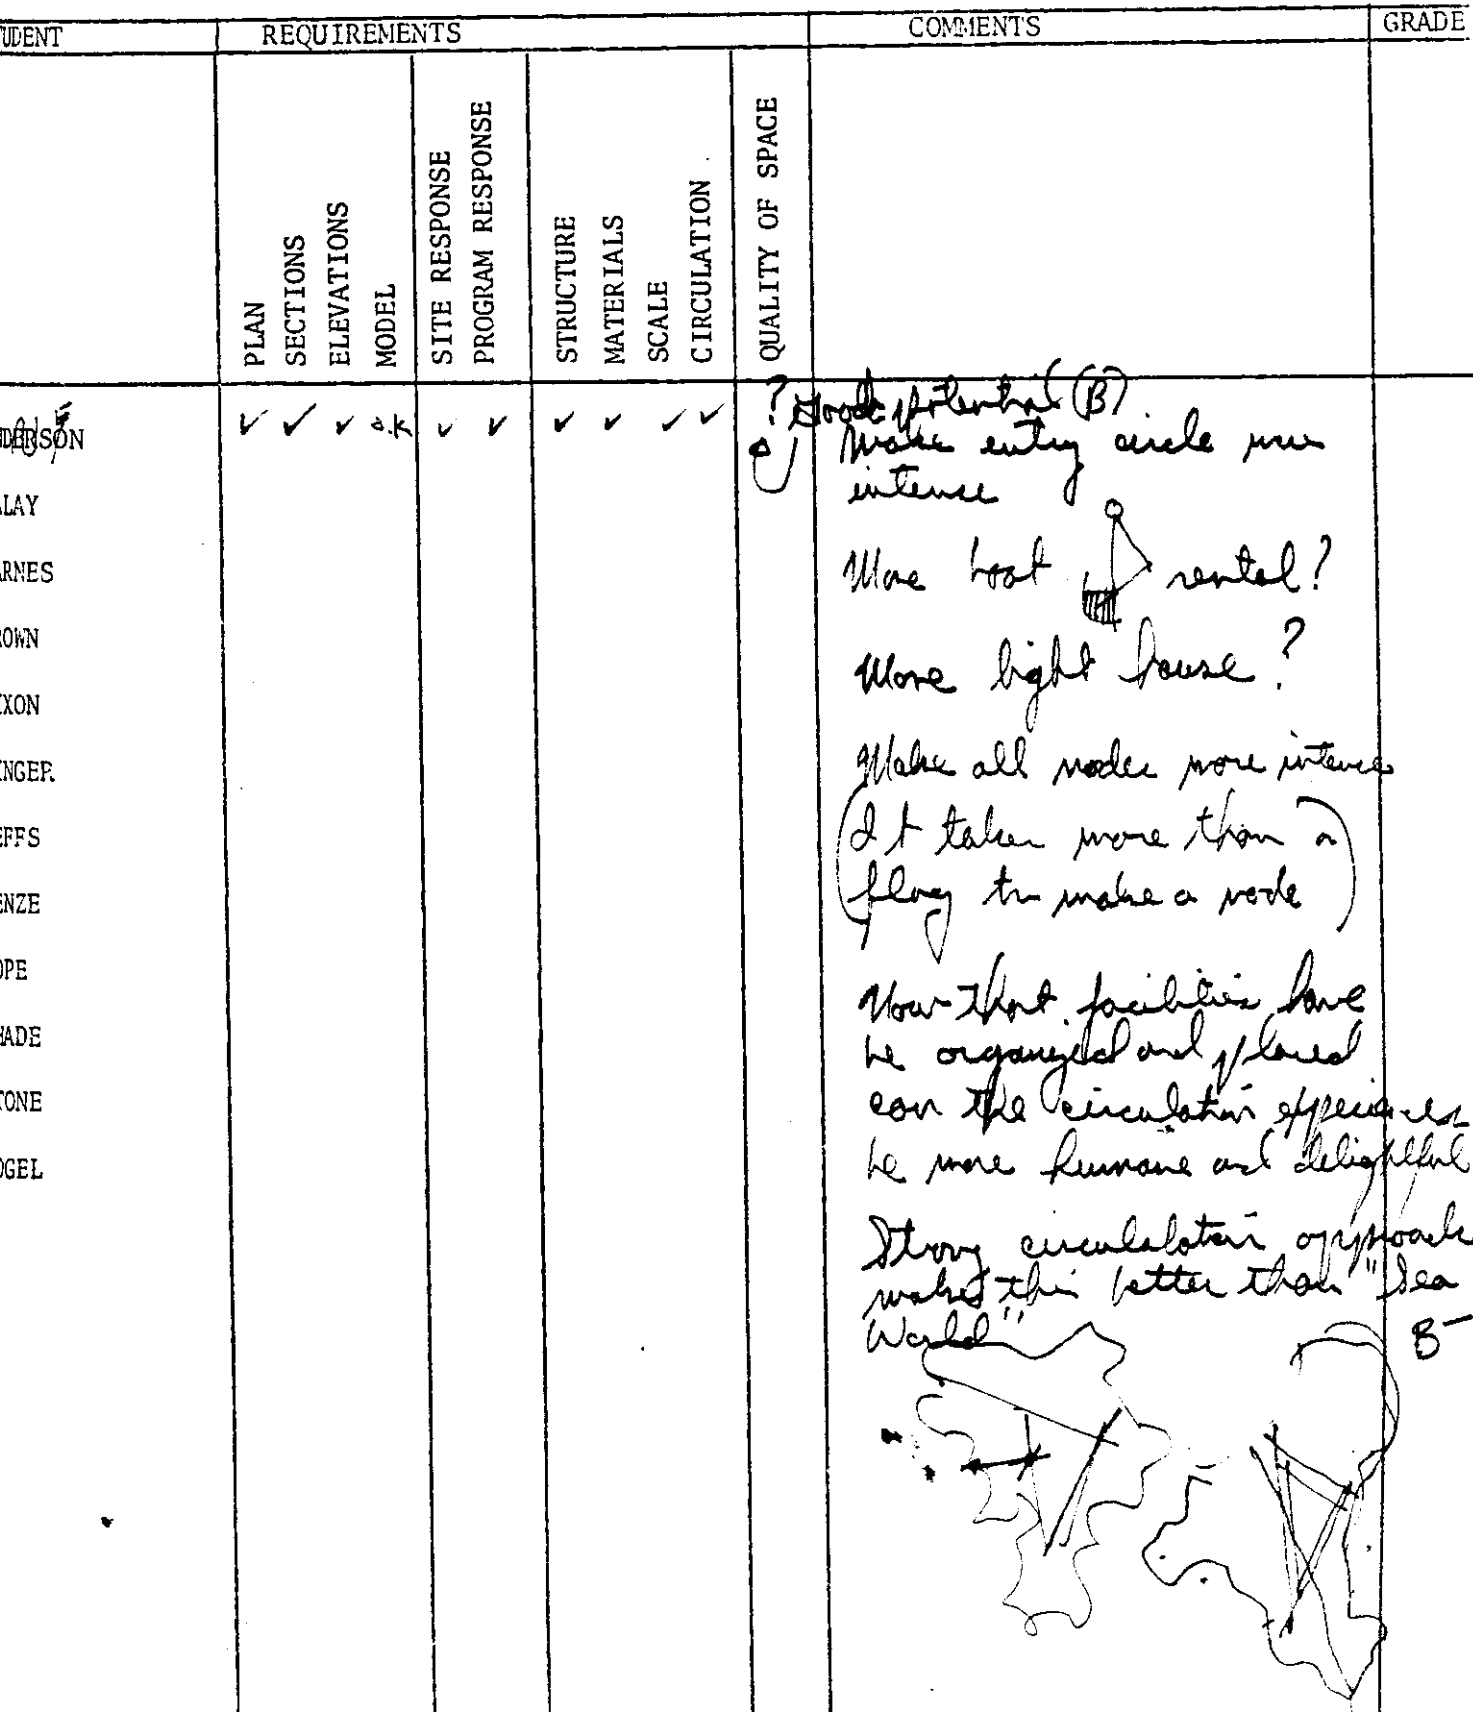 TUDENT REQUIREMENTS COMMENTS GRADE
PLAN
SECTIONS
ELEVATIONS
MODEL
SITE RESPONSE
PROGRAM RESPONSE
STRUCTURE
MATERIALS
SCALE
CIRCULATION
QUALITY OF SPACE
NDERSON ✓ ✓ ✓ o.k ✓ ✓ ✓ ✓ ✓ ✓ ? Good potential (B)
Make entry circle more
intense
ALAY
ARNES
More boat rental?
ROWN
More light house?
IXON
INGER
Make all nodes more intense
EFFS
(It takes more than a
ENZE
flag to make a node)
OPE
Now that facilities have
HADE
be organized and placed
TONE
can the circulation experiences
OGEL
be more humane and delightful
Strong circulatation approach
makes this better than "Sea
World"
B-